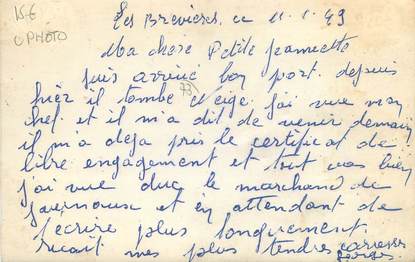 15€
CPHOTO
Les Brévières, ce 11.1.49
Ma chere Petite Jeannette
suis arrivé bon port. depuis
hier il tombe neige j'ai vue mon
73
chef et il m'a dit de venir demain
il m'a deja pris le certificat de
libre engagement et tout vas bien
j'ai vue duc le marchand de
et en attendant de
t'ecrire plus longuement
recoit mes plus tendres caresses
georges.